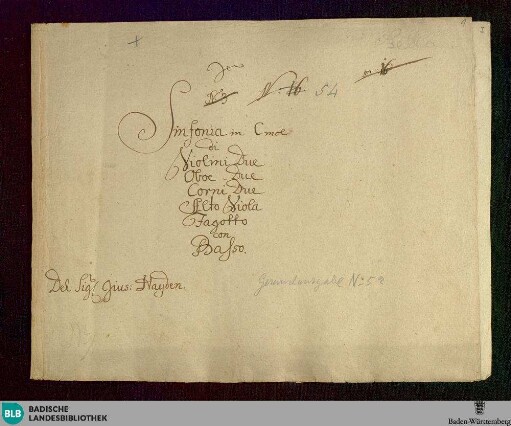 N. 16 54
Sinfonia in C moll
di
Violini Due
Oboe Due
Corni Due
Alto Viola
Fagotto
con
Basso.
Del Sig.r Gius: Hayden.
Gesamtausgabe No 52
BLB BADISCHE
LANDESBIBLIOTHEK
Baden-Württemberg